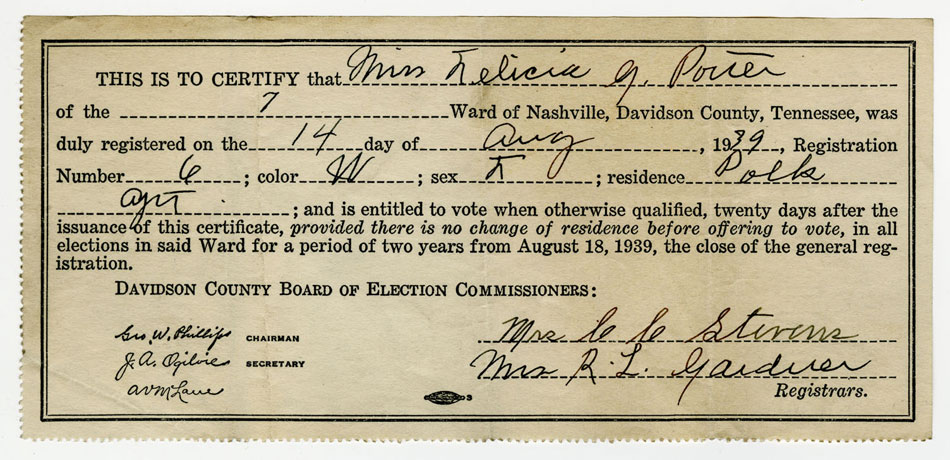 THIS IS TO CERTIFY that Miss Felicia G. Porter
of the 7 Ward of Nashville, Davidson County, Tennessee, was
duly registered on the 14 day of Aug, 1939, Registration
Number 6; color W; sex F; residence Polk
Apt; and is entitled to vote when otherwise qualified, twenty days after the
issuance of this certificate, provided there is no change of residence before offering to vote, in all
elections in said Ward for a period of two years from August 18, 1939, the close of the general reg-
istration.
DAVIDSON COUNTY BOARD OF ELECTION COMMISSIONERS:
Geo. W. Phillips CHAIRMAN
J. A. Ogilvie SECRETARY
A V McLane
Mrs C C Stevens
Mrs R. L. Gardner
Registrars.
3